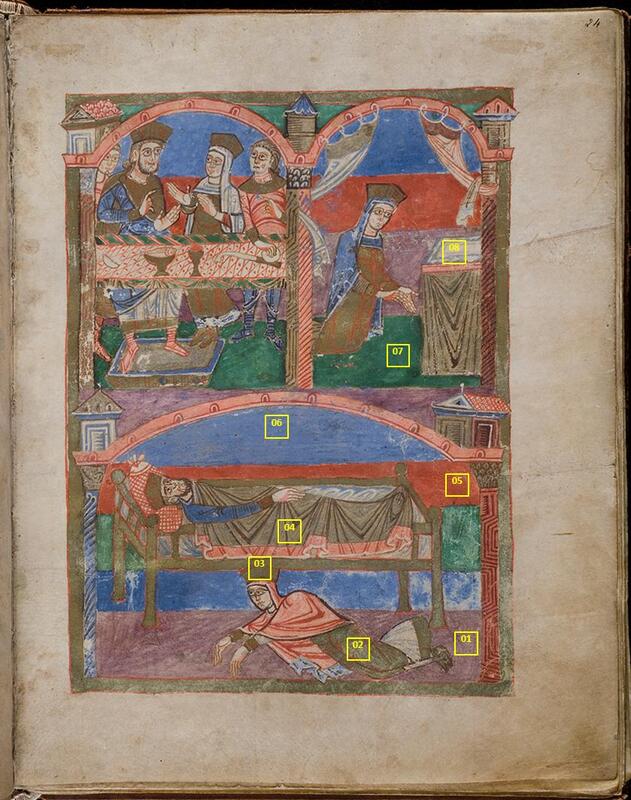 24
08
07
06
05
04
03
02
01